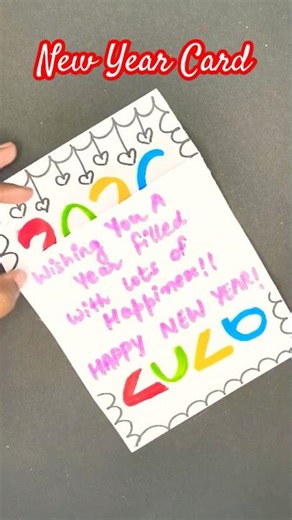 New Year Card
2026
Wishing You A
Year filled
with Lots of
Happiness!!
HAPPY NEW YEAR!
2026